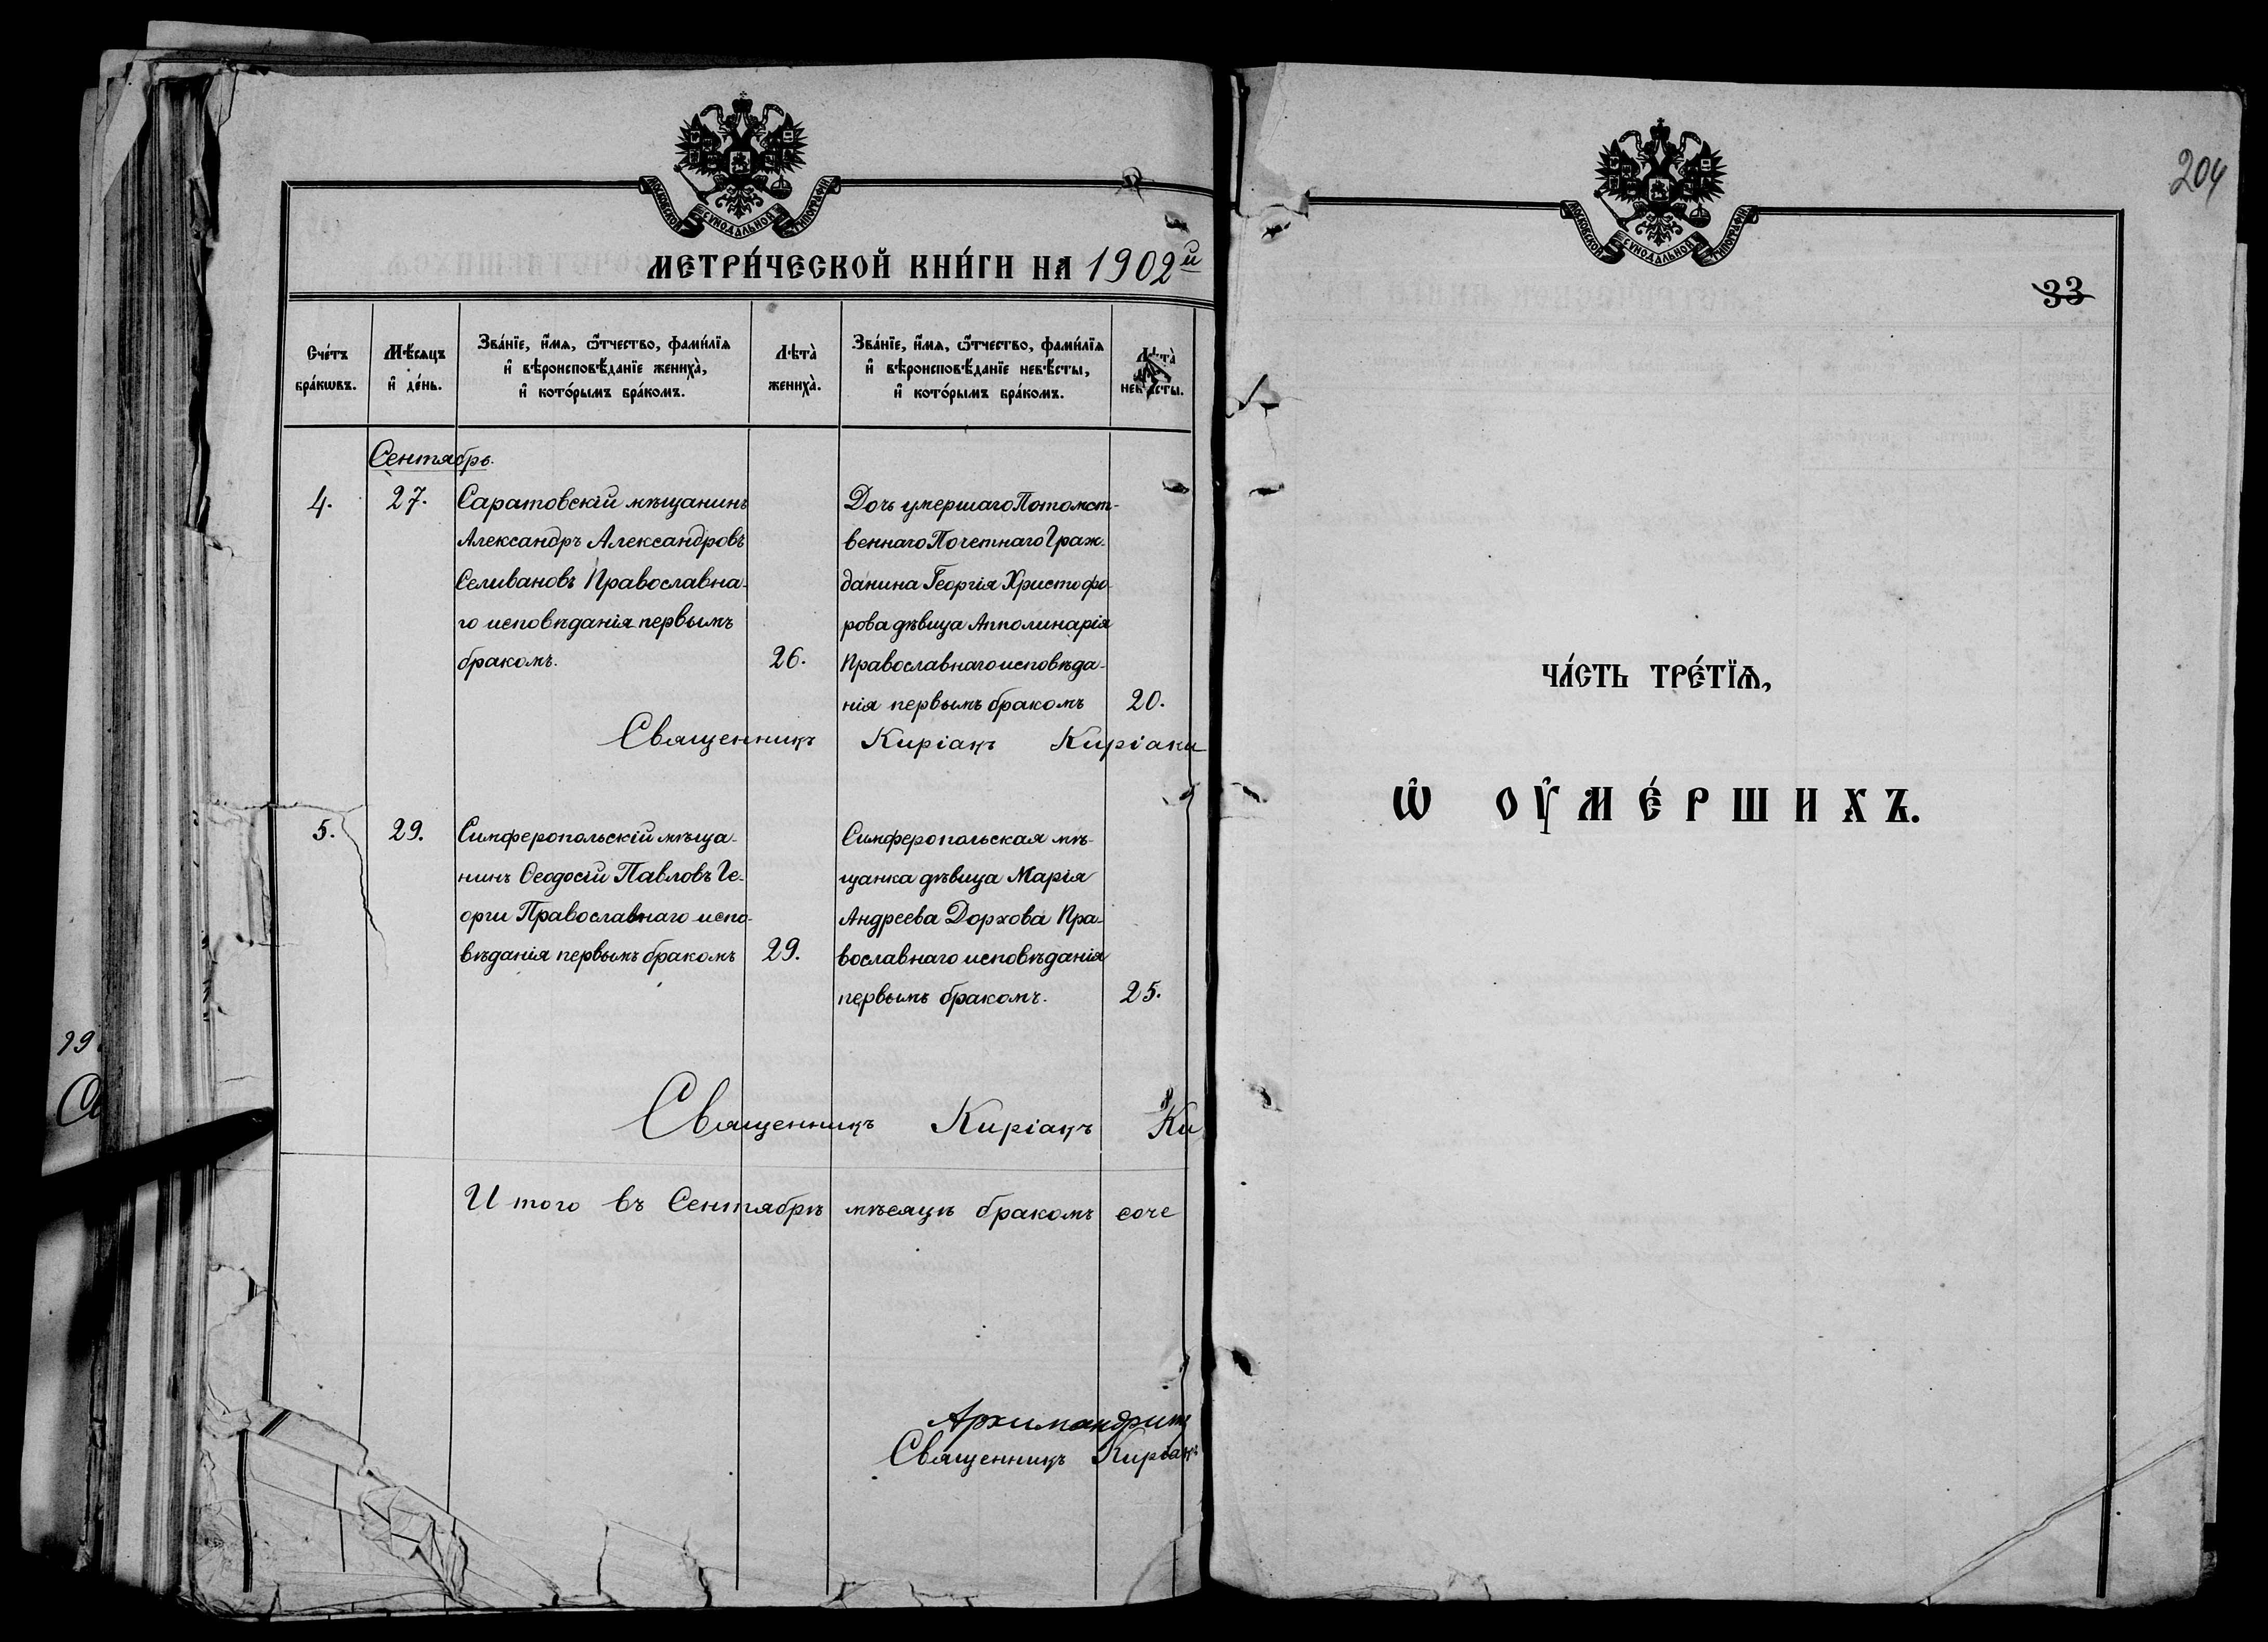 МОСКОВСКОЙ СѴНОДАЛЬНОЙ ТИПОГРАФІИ
МЕТРИ́ЧЕСКОЙ КНИ́ГИ НА 1902й
Сче́тъ бра́кѡвъ.
Мѣ́сяцъ и҆ де́нь.
Зва́нїе, и҆́мѧ, ѻ҆́тчество, фами́лїѧ
и҆ вѣроисповѣ́данїе жениха̀,
и҆ кото́рымъ бра́комъ.
Лѣта̀ жениха̀.
Зва́нїе, и҆́мѧ, ѻ҆́тчество, фами́лїѧ
и҆ вѣроисповѣ́данїе невѣ́сты,
и҆ кото́рымъ бра́комъ.
Лѣта̀ невѣ́сты.
Сентябрь.
4.
27.
Саратовскій мѣщанинъ
Александръ Александровъ
Селивановъ Православна-
го исповѣданія первымъ
бракомъ.
26.
Дочь умершаго Потомст-
веннаго Почетнаго Граж-
данина Георгія Христофо-
рова дѣвица Апполинарія
Православнаго исповѣда-
нія первымъ бракомъ
20.
Священникъ Киріакъ Киріаки
5.
29.
Симферопольскій мѣща-
нинъ Ѳеодосій Павловъ Ге-
орги Православнаго испо-
вѣданія первымъ бракомъ
29.
Симферопольская мѣ-
щанка дѣвица Марія
Андреева Дорхова Пра-
вославнаго исповѣданія
первымъ бракомъ.
25.
Священникъ Киріакъ Ки
Итого въ Сентябрѣ мѣсяцѣ бракомъ соче
Архимандритъ
Священникъ Киріакъ
204
МОСКОВСКОЙ СѴНОДАЛЬНОЙ ТИПОГРАФІИ
33
ЧА́СТЬ ТРЕ́ТЇѦ,
Ѡ҆ ОУ҆МЕ́РШИХЪ.